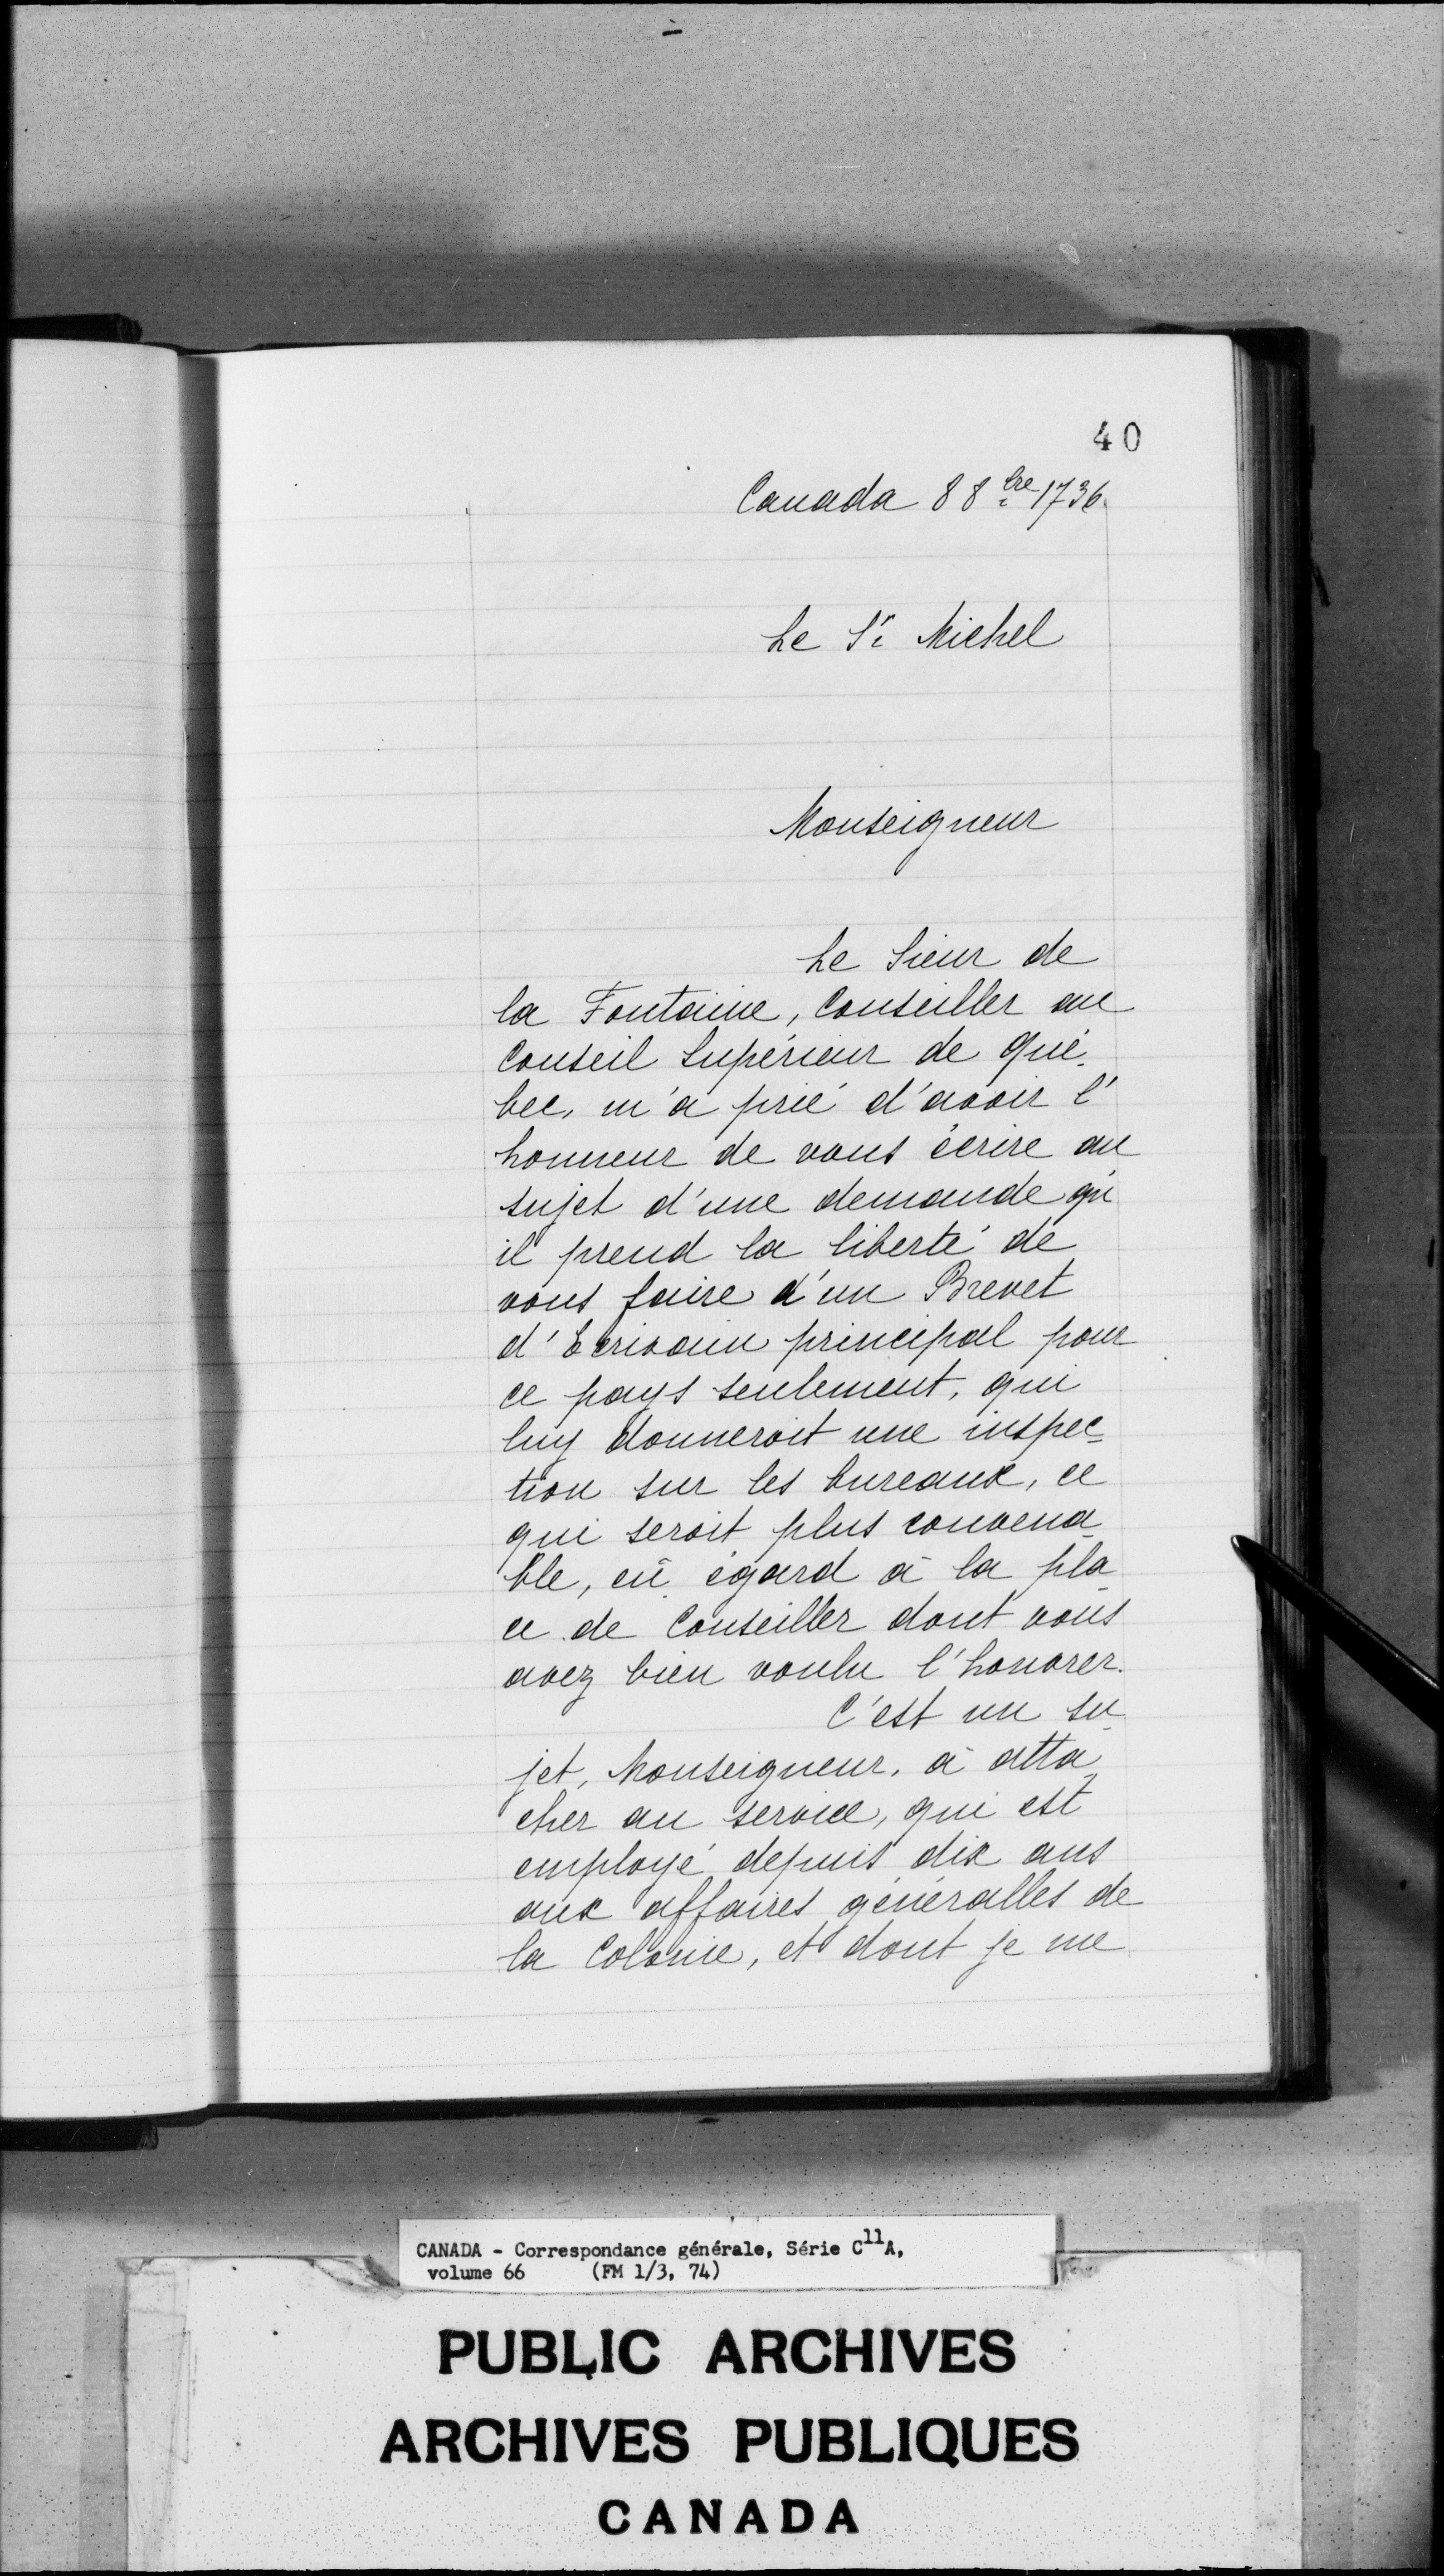 40
Canada 8 8bre 1736.
Le Sr Michel
Monseigneur
Le Sieur de
la Fontaine, Conseiller au
Conseil Supérieur de Qué-
bec, m'a prié d'avoir l'
honneur de vous écrire au
sujet d'une demande qu'
il prend la liberté de
vous faire d'un Brevet
d'Ecrivain principal pour
ce pays seulement, qui
luy donneroit une inspec-
tion sur les bureaux, ce
qui seroit plus convena-
ble, eû égard à la pla-
ce de Conseiller dont vous
avez bien voulu l'honorer.
C'est un su-
jet, Monseigneur, à atta-
cher au service, qui est
employé depuis dix ans
aux affaires généralles de
la Colonie, et dont je me
CANADA - Correspondance générale, Série C11A,
volume 66 (FM 1/3, 74)
PUBLIC ARCHIVES
ARCHIVES PUBLIQUES
CANADA